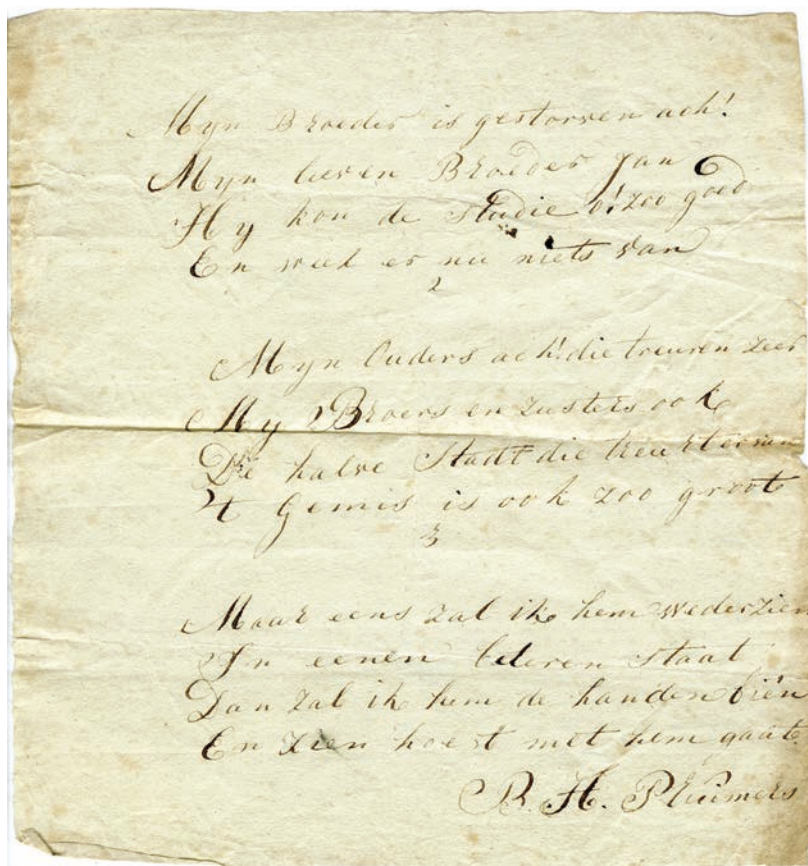 Myn Broeder is gestorven ach!
Myn lieven Broeder Jan
Hy kon de Studie o! zoo goed
En weet er nu niets van
2
Myn Ouders ach! die treuren zeer
My Broers en zusters ook
De halve Stadt die treurt er van
't Gemis is ook zoo groot
3
Maar eens zal ik hem wederzien
In eenen beteren staat
Dan zal ik hem de handen biên
En zien hoe 't met hem gaat.
B. H. Pluimers